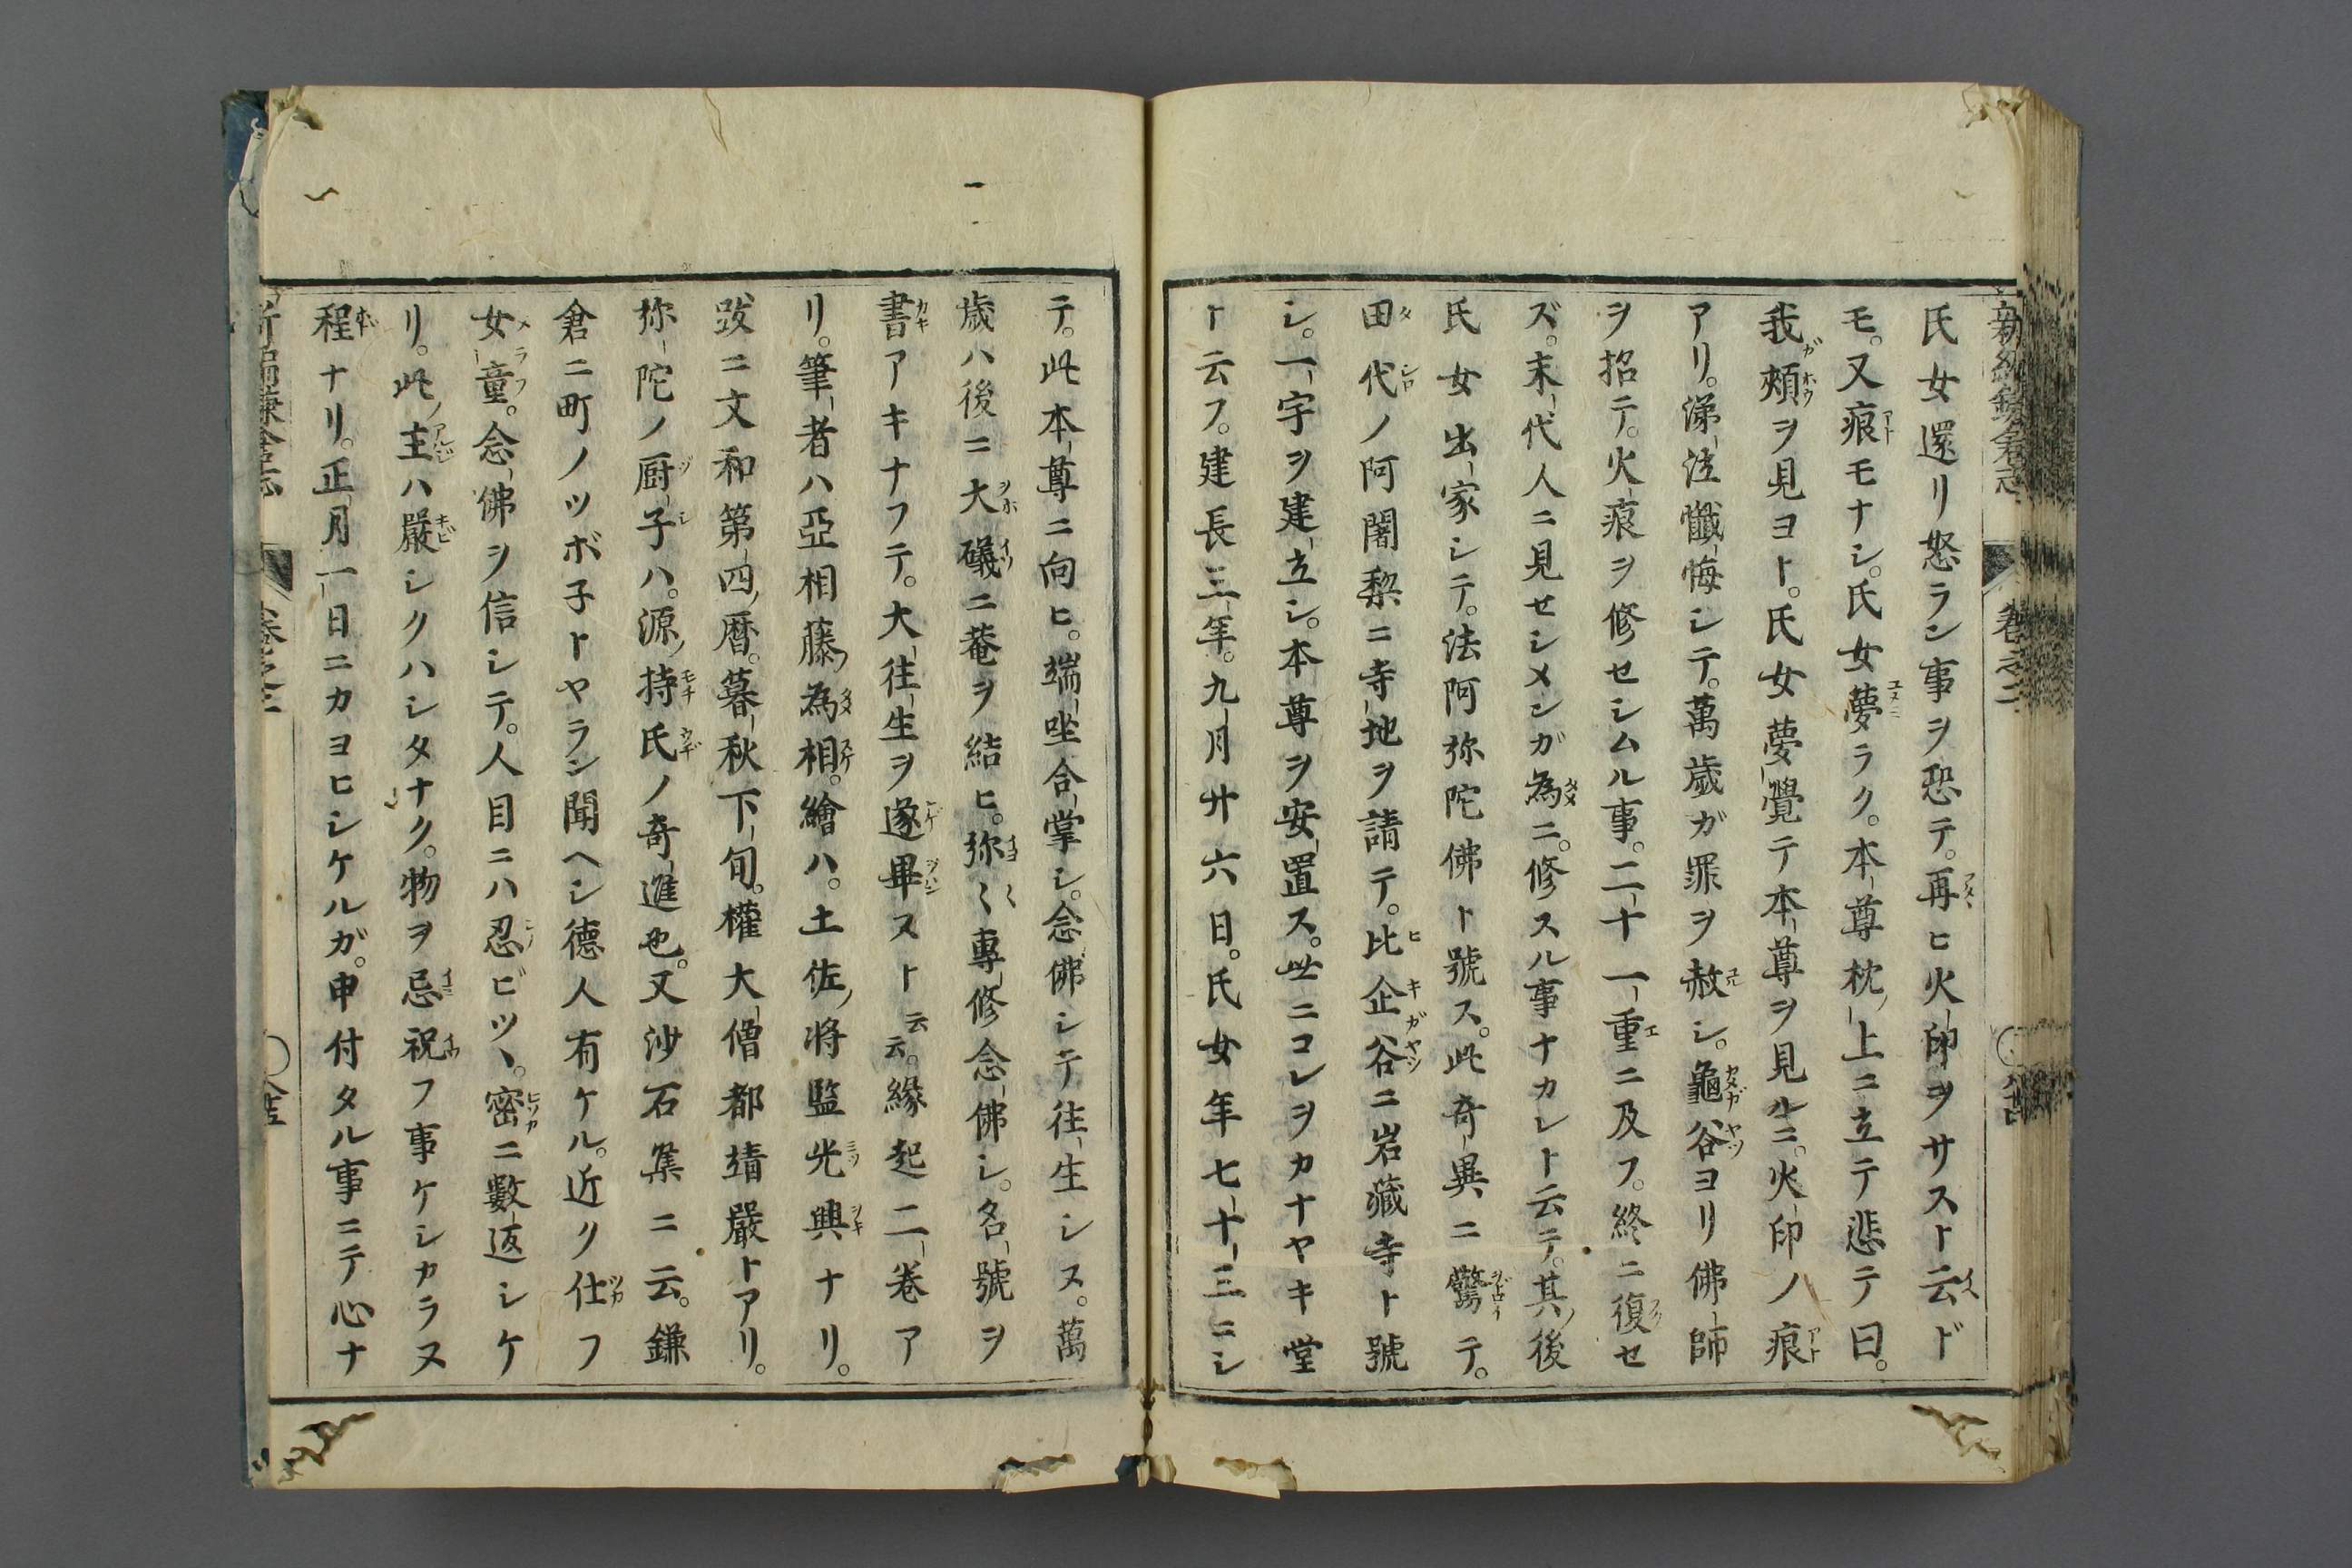 氏女還リ怒ラン事ヲ恐テ。再ヒ火印ヲサスト云ド
モ。又痕モナシ。氏女夢ラク。本尊枕ノ上ニ立テ悲テ曰。
我頰ヲ見ヨト。氏女夢覺テ本尊ヲ見ルニ。火印ノ痕
アリ。涕泣懺悔シテ。萬歳ガ罪ヲ赦シ。龜谷ヨリ佛師
ヲ招テ。火痕ヲ修セシムル事。二十一重ニ及フ。終ニ復セ
ズ。末代人ニ見セシメンガ為ニ。修スル事ナカレト云テ。其ノ後
氏女出家シテ。法阿弥陀佛ト號ス。此奇異ニ驚テ。
田代ノ阿闍梨ニ寺地ヲ請テ。比企谷ニ岩藏寺ト號
シ。一宇ヲ建立シ。本尊ヲ安置ス。世ニコレヲカナヤキ堂
ト云フ。建長三年。九月廿六日。氏女年七十三ニシ
テ。此本尊ニ向ヒ。端坐合掌シ。念佛シテ往生シス。萬
歳ハ後ニ大磯ニ菴ヲ結ヒ。弥〻專修念佛シ。名號ヲ
書アキナフテ。大往生ヲ遂畢ヌト云云。緣起二卷ア
リ。筆者ハ亞相藤ノ為相。繪ハ。土佐ノ将監光興ナリ。
跋ニ文和第四ノ曆。暮秋下旬。權大僧都靖嚴トアリ。
弥陀ノ厨子ハ。源ノ持氏ノ奇進也。又沙石集ニ云。鎌
倉ニ町ノツボ子トヤラン聞ヘシ德人有ケル。近ク仕フ
女童。念佛ヲ信シテ。人目ニハ忍ビツヽ。密ニ數返シケ
リ。此ノ主ハ嚴シクハシタナク。物ヲ忌祝フ事ケシカラヌ
程ナリ。正月一日ニカヨヒシケルガ。申付タル事ニテ心ナ